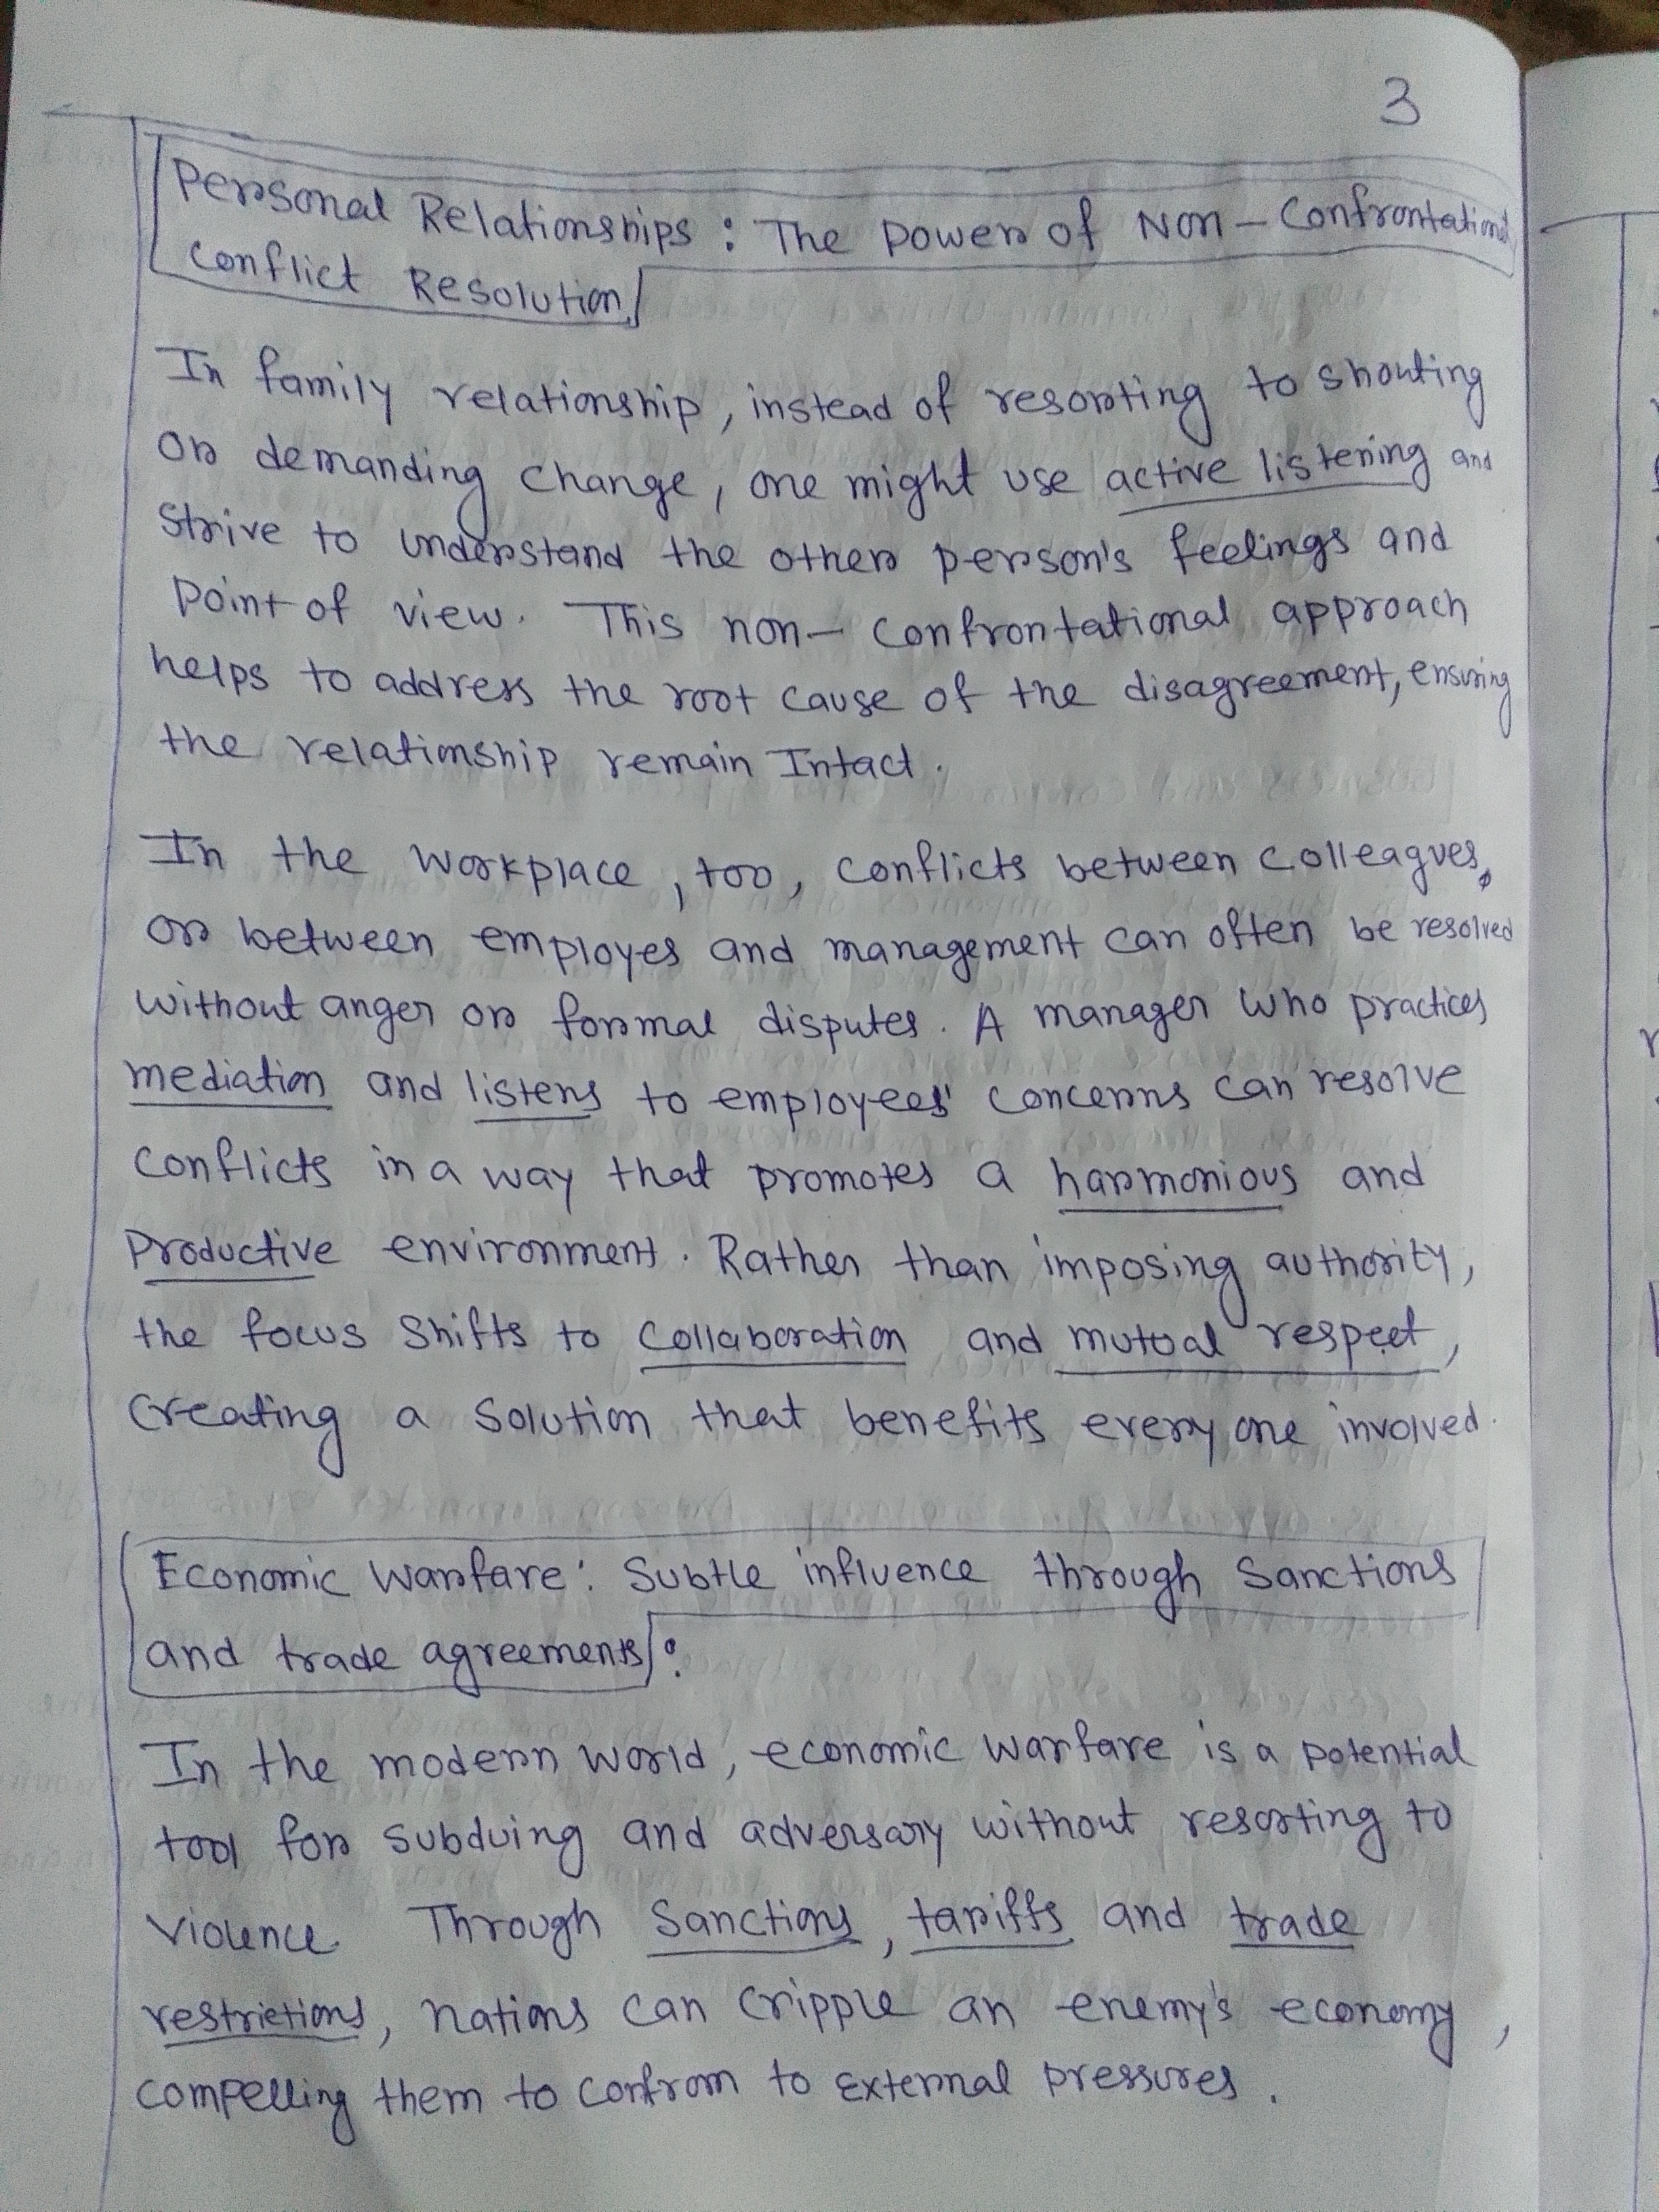 3
Personal Relationships : The Power of Non-Confrontational
Conflict Resolution
In family relationship, instead of resorting to shouting
or demanding change, one might use active listening and
strive to understand the other person's feelings and
point of view. This non-confrontational approach
helps to address the root cause of the disagreement, ensuring
the relationship remain Intact.
In the workplace, too, conflicts between colleagues,
or between employes and management can often be resolved
without anger or formal disputes. A manager who practices
mediation and listens to employees' concerns can resolve
conflicts in a way that promotes a harmonious and
productive environment. Rather than imposing authority,
the focus shifts to collaboration and mutual respect,
creating a solution that benefits every one involved.
Economic Warfare: Subtle influence through Sanctions
and trade agreements:
In the modern world, economic warfare is a potential
tool for subduing and adversary without resorting to
violence. Through Sanctions, tariffs and trade
restrictions, nations can cripple an enemy's economy,
compelling them to confrom to External pressures.